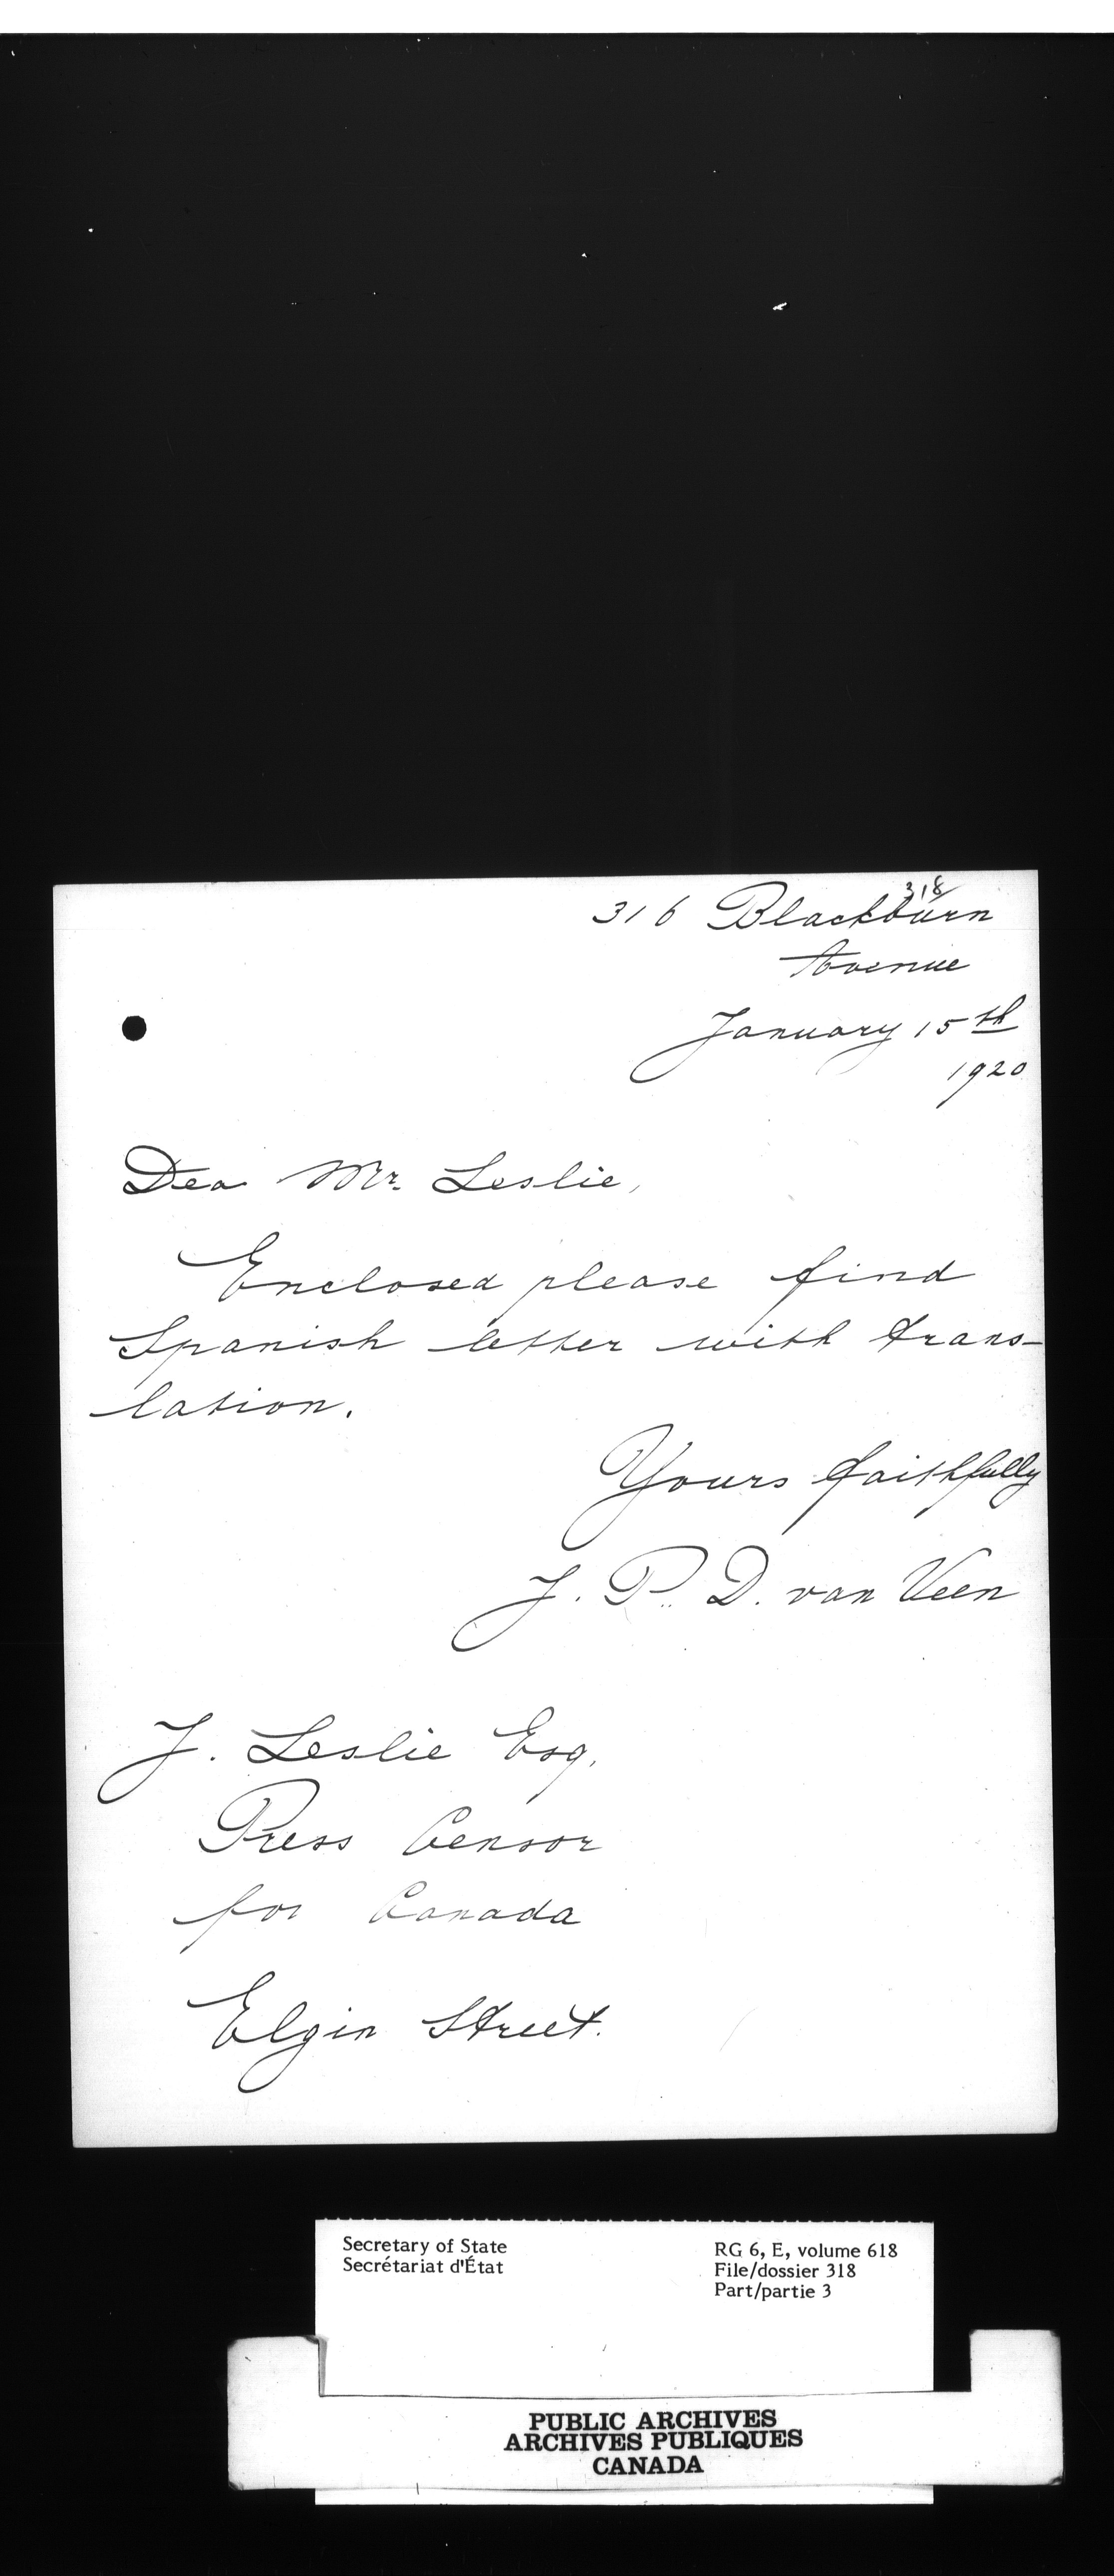 318
316 Blackburn
Avenue
January 15th
1920
Dear Mr. Leslie,
Enclosed please find
Spanish letter with trans-
lation.
Yours faithfully
J. P. D. van Veen
J. Leslie Esq.
Press Censor
for Canada
Elgin Street.
Secretary of State
Secrétariat d'État
RG 6, E, volume 618
File/dossier 318
Part/partie 3
PUBLIC ARCHIVES
ARCHIVES PUBLIQUES
CANADA